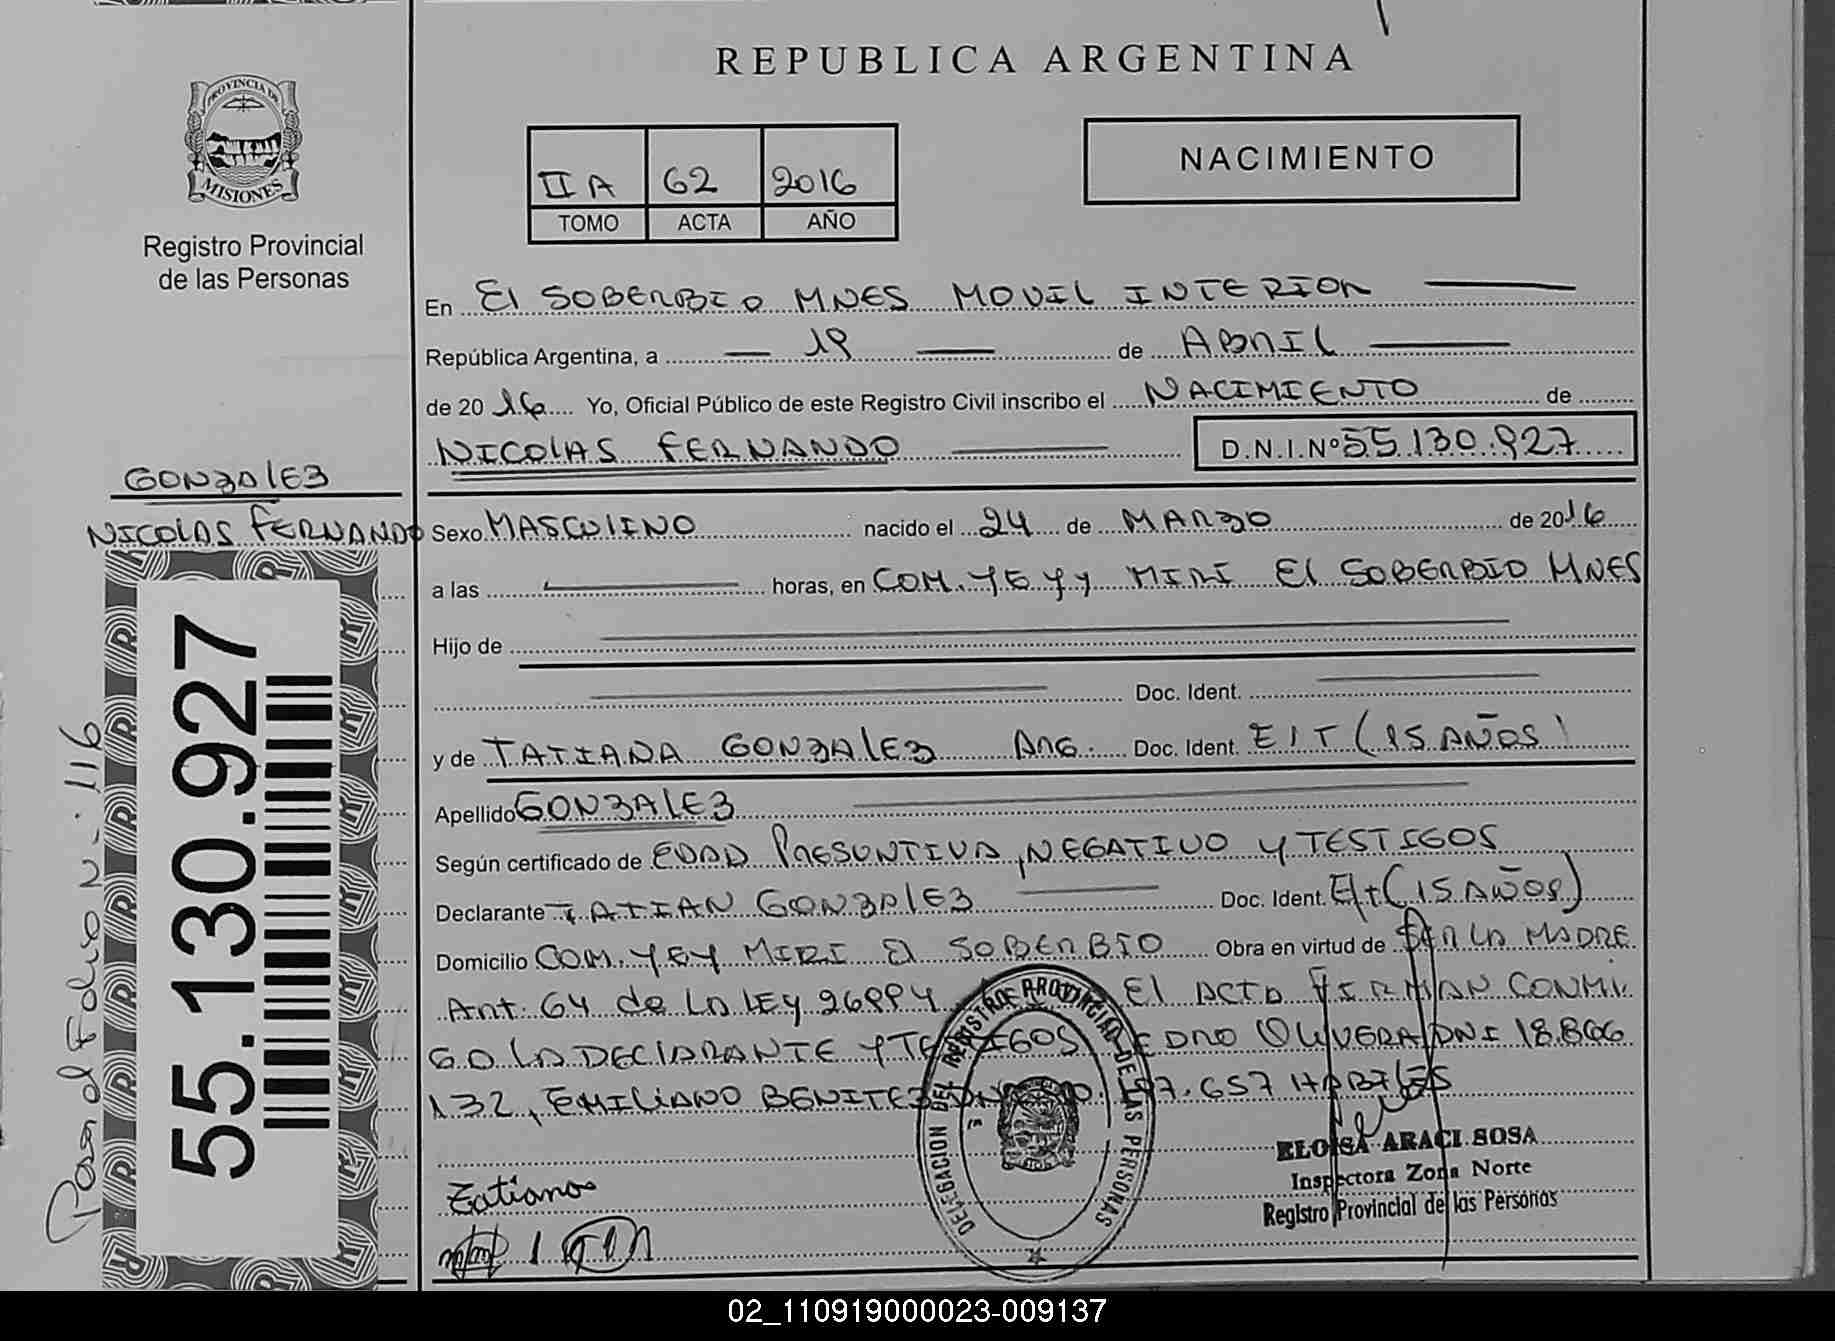 REPUBLICA ARGENTINA
PROVINCIA DE
MISIONES
Registro Provincial
de las Personas
IIA 62 2016
TOMO ACTA AÑO
NACIMIENTO
En El SOBERBIO MNES MOVIL INTERIOR
República Argentina, a 19 de ABRIL
de 2016 Yo, Oficial Público de este Registro Civil inscribo el NACIMIENTO de
NICOLAS FERNANDO D.N.I.Nº 55.130.927
GONZALEZ
NICOLAS FERNANDO
Sexo MASCULINO nacido el 24 de MARZO de 2016
a las horas, en COM. YEYY MIRI El SOBERBIO MNES
Hijo de
Doc. Ident.
y de TATIANA GONZALEZ ARG. Doc. Ident. EIT (15 AÑOS)
Apellido GONZALEZ
Según certificado de EDAD PRESUNTIVA, NEGATIVO Y TESTIGOS
Declarante TATIAN GONZALEZ Doc. Ident. EIT (15 AÑOS)
Domicilio COM. YEY MIRI El SOBERBIO Obra en virtud de SER LA MADRE
Art. 64 de LA LEY 26994 El ACTA FIRMAN CONMI
GO LA DECLARANTE Y OLIVERA DNI 18.866
132, EMILIANO BENITEZ 657 HABILES
DELEGACION DEL REGISTRO PROVINCIAL DE LAS PERSONAS
ELOISA ARACI SOSA
Inspectora Zona Norte
Registro Provincial de las Personas
Tatiana
55.130.927
Pasa al Folio N- 116
02_110919000023-009137